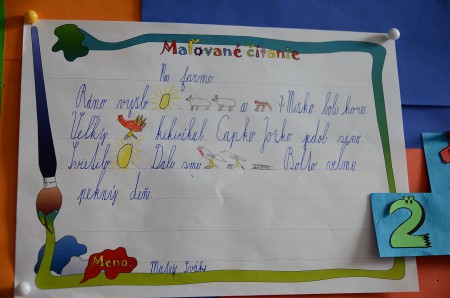 Maľované čítanie
Na farme
Ráno vyšlo a a Miško boli hore.
Veľký kikiríkal. Capko Jožko jedol seno.
Svietilo Dali sme Bolo to veľmi
pekný deň.
Meno: Matej
2